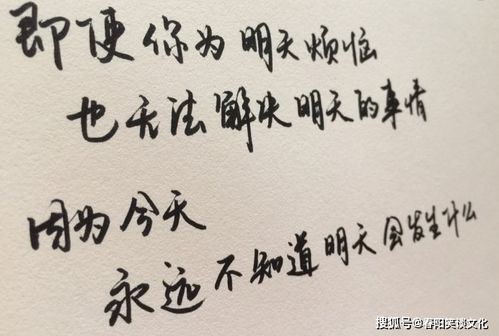 即便你为明天烦恼
也无法解决明天的事情
因为今天
永远不知道明天会发生什么
搜狐号@春阳笑谈文化